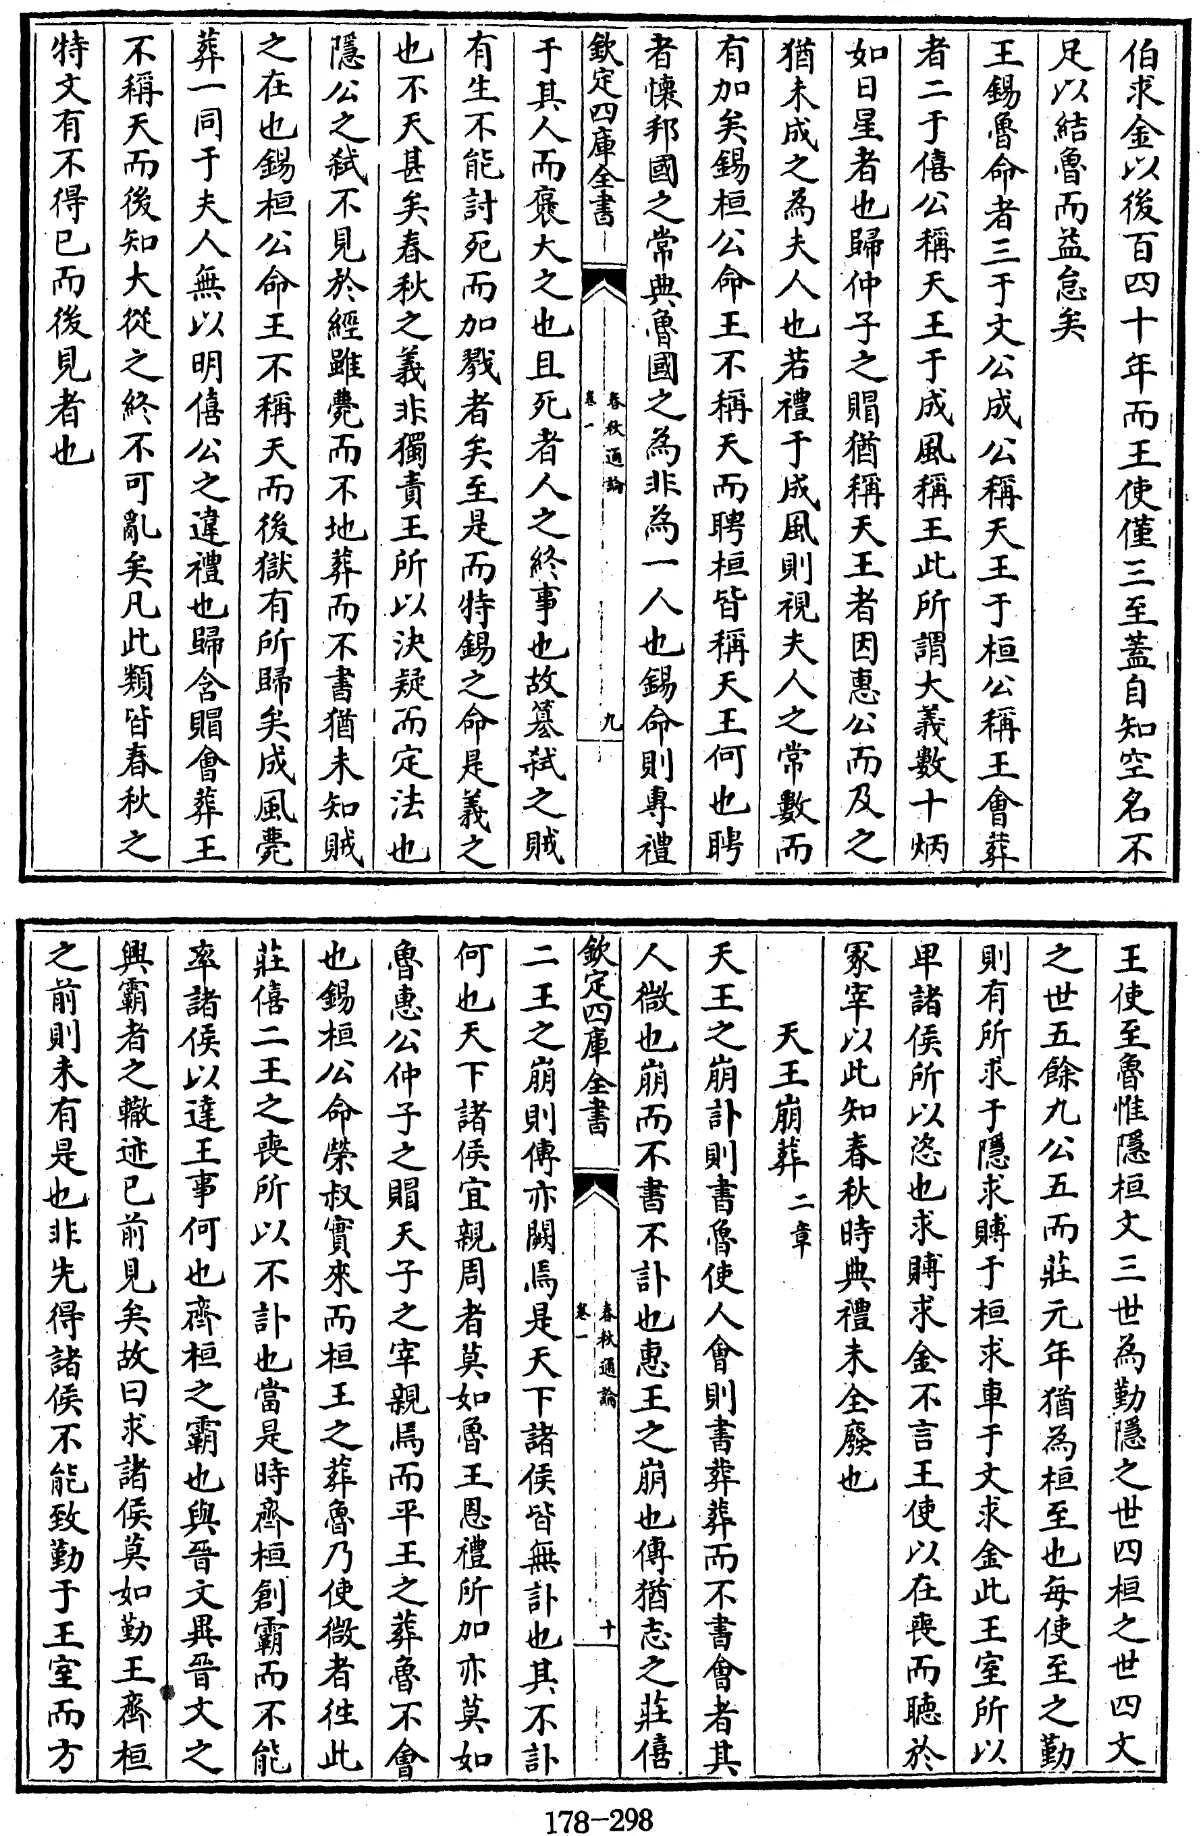 伯求金以後百四十年而王使僅三至蓋自知空名不
足以結魯而益怠矣
王錫魯命者三于文公成公稱天王于桓公稱王會葬
者二于僖公稱天王于成風稱王此所謂大義數十炳
如日星者也歸仲子之賵猶稱天王者因惠公而及之
猶未成之為夫人也若禮于成風則視夫人之常數而
有加矣錫桓公命王不稱天而聘桓皆稱天王何也聘
者懷邦國之常典魯國之為非為一人也錫命則專禮
欽定四庫全書
春秋通論
卷一
九
于其人而褒大之也且死者人之終事也故簒弑之賊
有生不能討死而加戮者矣至是而特錫之命是義之
也不天甚矣春秋之義非獨責王所以決疑而定法也
隱公之弑不見於經雖薨而不地葬而不書猶未知賊
之在也錫桓公命王不稱天而後獄有所歸矣成風薨
葬一同于夫人無以明僖公之違禮也歸含賵會葬王
不稱天而後知大從之終不可亂矣凡此類皆春秋之
特文有不得已而後見者也
王使至魯惟隱桓文三世為勤隱之世四桓之世四文
之世五餘九公五而莊元年猶為桓至也每使至之勤
則有所求于隱求賻于桓求車于文求金此王室所以
卑諸侯所以恣也求賻求金不言王使以在喪而聽於
冢宰以此知春秋時典禮未全廢也
天王崩葬二章
天王之崩訃則書魯使人會則書葬葬而不書會者其
人微也崩而不書不訃也惠王之崩也傳猶志之莊僖
欽定四庫全書
春秋通論
卷一
十
二王之崩則傳亦闕焉是天下諸侯皆無訃也其不訃
何也天下諸侯宜親周者莫如魯王恩禮所加亦莫如
魯惠公仲子之賵天子之宰親焉而平王之葬魯不會
也錫桓公命榮叔實來而桓王之葬魯乃使微者往此
莊僖二王之喪所以不訃也當是時齊桓創霸而不能
率諸侯以達王事何也齊桓之霸也與晉文異晉文之
興霸者之轍迹已前見矣故曰求諸侯莫如勤王齊桓
之前則未有是也非先得諸侯不能致勤于王室而方
178-298